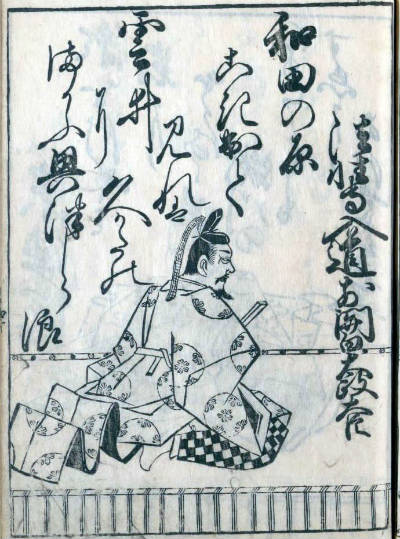 法性寺入道前関白太政大臣
和田の原
こき出て
見れは
久かたの
雲井
に
まかふ興津しら
浪